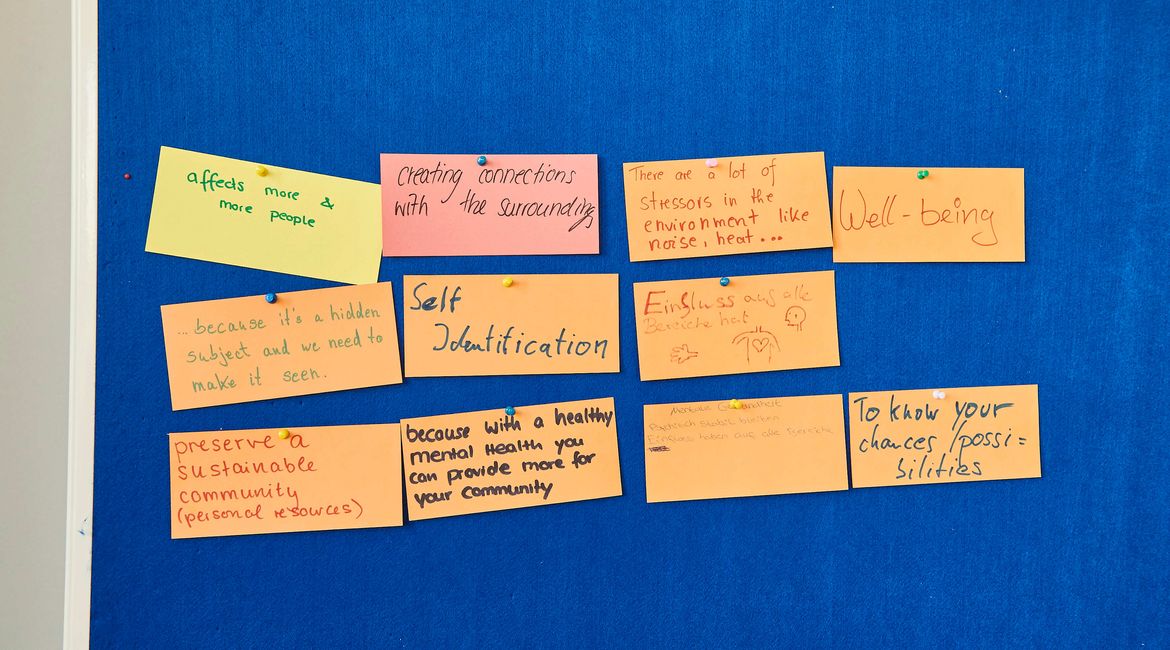 affects more &
more people
creating connections
with the surrounding
There are a lot of
stressors in the
environment like
noise, heat...
Well-being
... because it's a hidden
subject and we need to
make it seen.
Self
Identification
Einfluss auf alle
Bereiche hat
preserve a
sustainable
community
(personal resources)
because with a healthy
mental Health you
can provide more for
your community
Mentale Gesundheit
Psychisch stabil bleiben
Einfluss haben auf alle Bereiche
To know your
chances /possi=
bilities